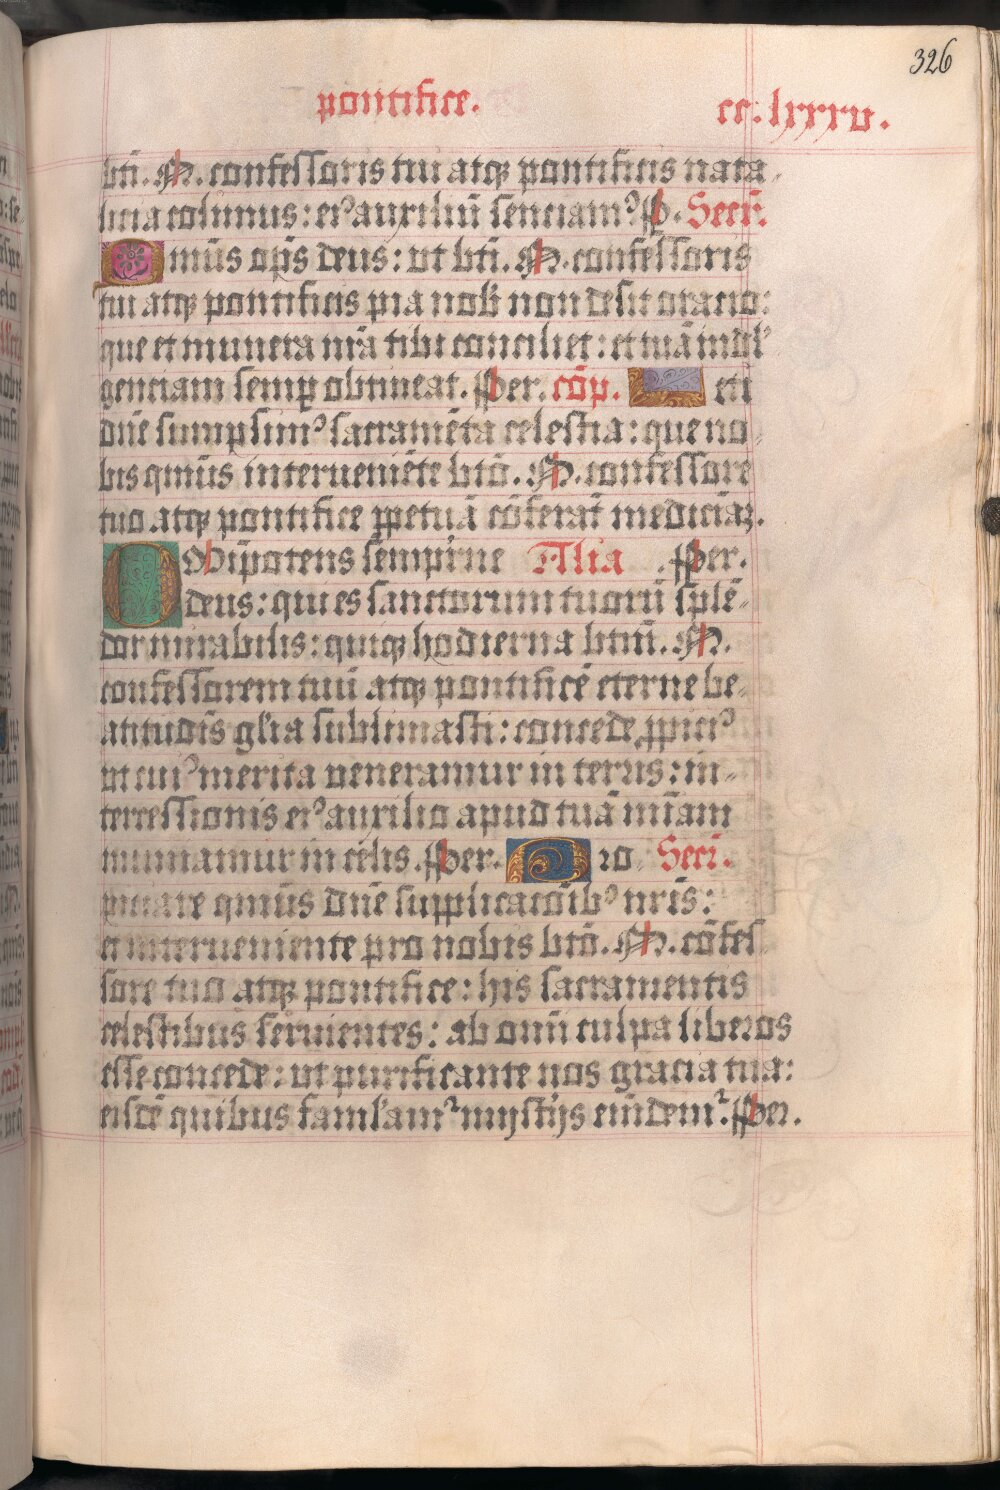 326
pontifice. cc: lxxxv.
bti̅. N. confessoris tui atq; pontificis nata-
licia colimus: ei⁹ auxiliu̅ senciam⁹. P. Secr̅.
Omi̅s op̅s deus: ut bti̅. N. confessoris
tui atq; pontificis pia nob̅ non desit oracio:
que et munera nr̅a tibi conciliet: et tua̅ indul-
genciam semp̲ obtineat. Per. co̅p. Leti
dn̅e sumpsim⁹ sacrame̅ta celestia: que no-
bis qm̅us intervenie̅te bto̅. N. confessore
tuo atq; pontifice p̲petua̅ co̅fera̅t medicia̅ꝫ.
Omi̅potens sempi̅rne Alia . Per.
deus: qui es sanctorum tuoru̅ sple̅-
dor mirabilis: quiq; hodierna btm̅. N.
confessorem tuu̅ atq; pontifice̅ eterne be-
atitudi̅s gl'ia sublimasti: concede p̲pici⁹
ut cui⁹ merita veneramur in terris: in-
tercessionis ei⁹ auxilio apud tua̅ mi̅am
muniamur in celis. Per. Pro Secr̅.
piciare qm̅us dn̅e supplicacoi̅b⁹ nr̅is:
et interveniente pro nobis bto̅. N. co̅fes
sore tuo atq; pontifice: his sacramentis
celestibus servientes: ab omi̅ culpa liberos
esse concede: ut purificante nos gracia tua:
eisde̅ quibus faml'amr mysterijs emu̅demr. Per.